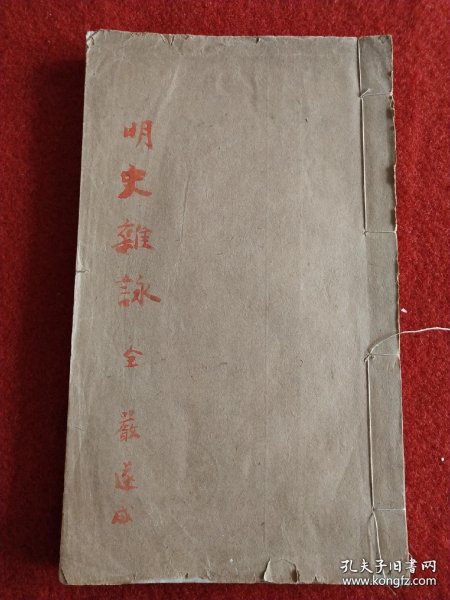 明史雜詠 全 嚴遂成
孔夫子旧书网
www.kongfz.com